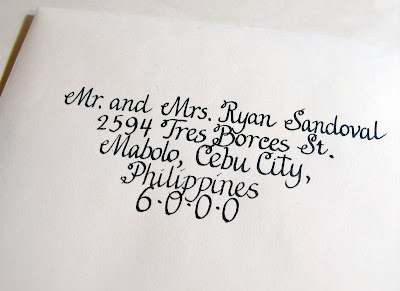 Mr. and Mrs. Ryan Sandoval
2594 Tres Borces St.
Mabolo, Cebu City,
Philippines
6·0·0·0